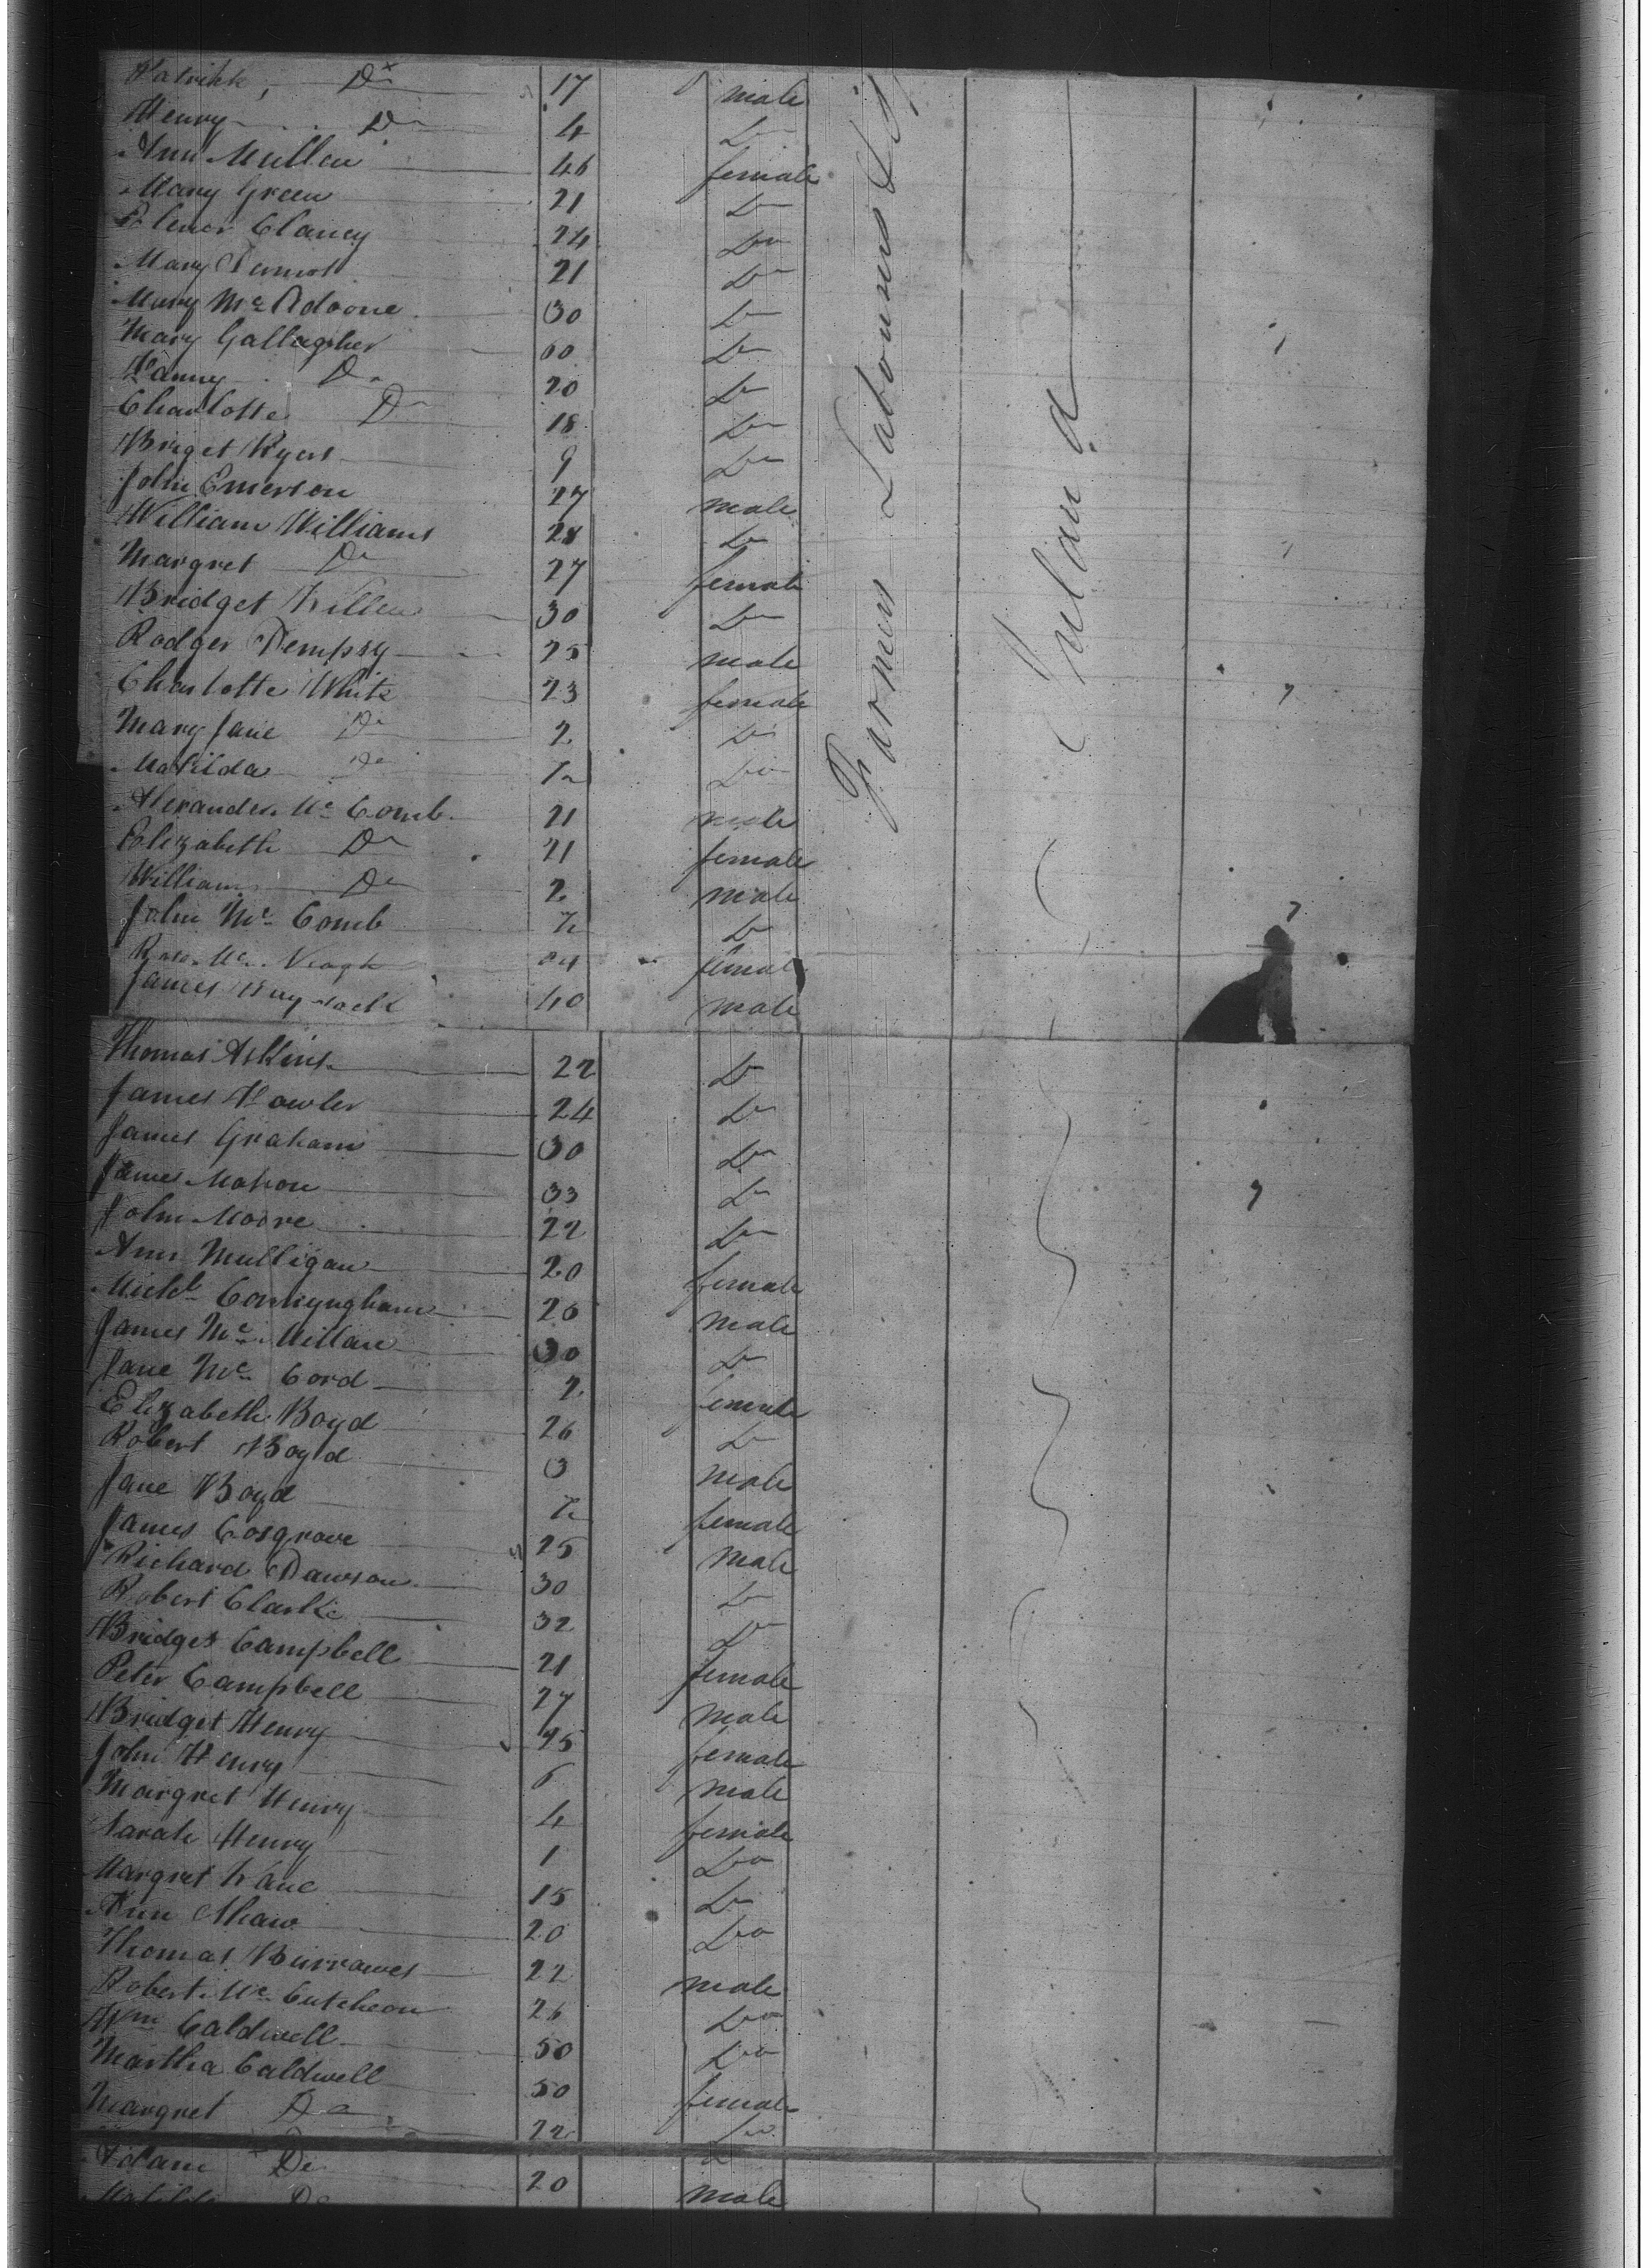 Patrikk, Do 17 male
Henry Do 4 Do
Ann Mullen 46 female
Mary Green 21 Do
Elenor Clancy 24 Do
Mary 21 Do
Mary Mc Adoone 30 Do
Mary Gallagher 60 Do
Fanny Do 20 Do
Charlotte Do 18 Do
Briget 9 Do
John Emerson 27 male
William Williams 28 Do
Margret Do 27 female
Bridget Killen 30 Do
Rodger Dempsy 25 male
Charlotte White 23 female
Mary Jane Do 2 Do
Matilda Do Do
Alexander Mc Comb 21 male
Elizabeth Do 21 female
William Do 2 male
John Mc Comb Do
Mc female
James 40 male
Farmers Labourers
Ireland
Thomas Askins 22 Do
James Fowler 24 Do
James Graham 30 Do
James Mahon 33 Do
John Moore 22 Do
Ann Mulligan 20 female
Michl Connyngham 26 male
James Mc Millan 30 Do
Jane Mc Cord 2 female
Elizabeth Boyd 26 Do
Robert Boyd 3 male
Jane Boyd female
James Cosgrove 25 male
Richard Dawson 30 Do
Robert Clarke 32 Do
Bridget Campbell 21 female
Peter Campbell 27 male
Bridget Henry 25 female
John Henry 6 male
Margret Henry 4 female
Sarah Henry 1 Do
Margret Kane 15 Do
Ann Shaw 20 Do
Thomas Burrowes 22 male
Robert Mc Cutcheon 26 Do
Wm Caldwell 50 Do
Martha Caldwell 50 female
Margret Do 22 Do
Adam Do 20 male
Matilda Do